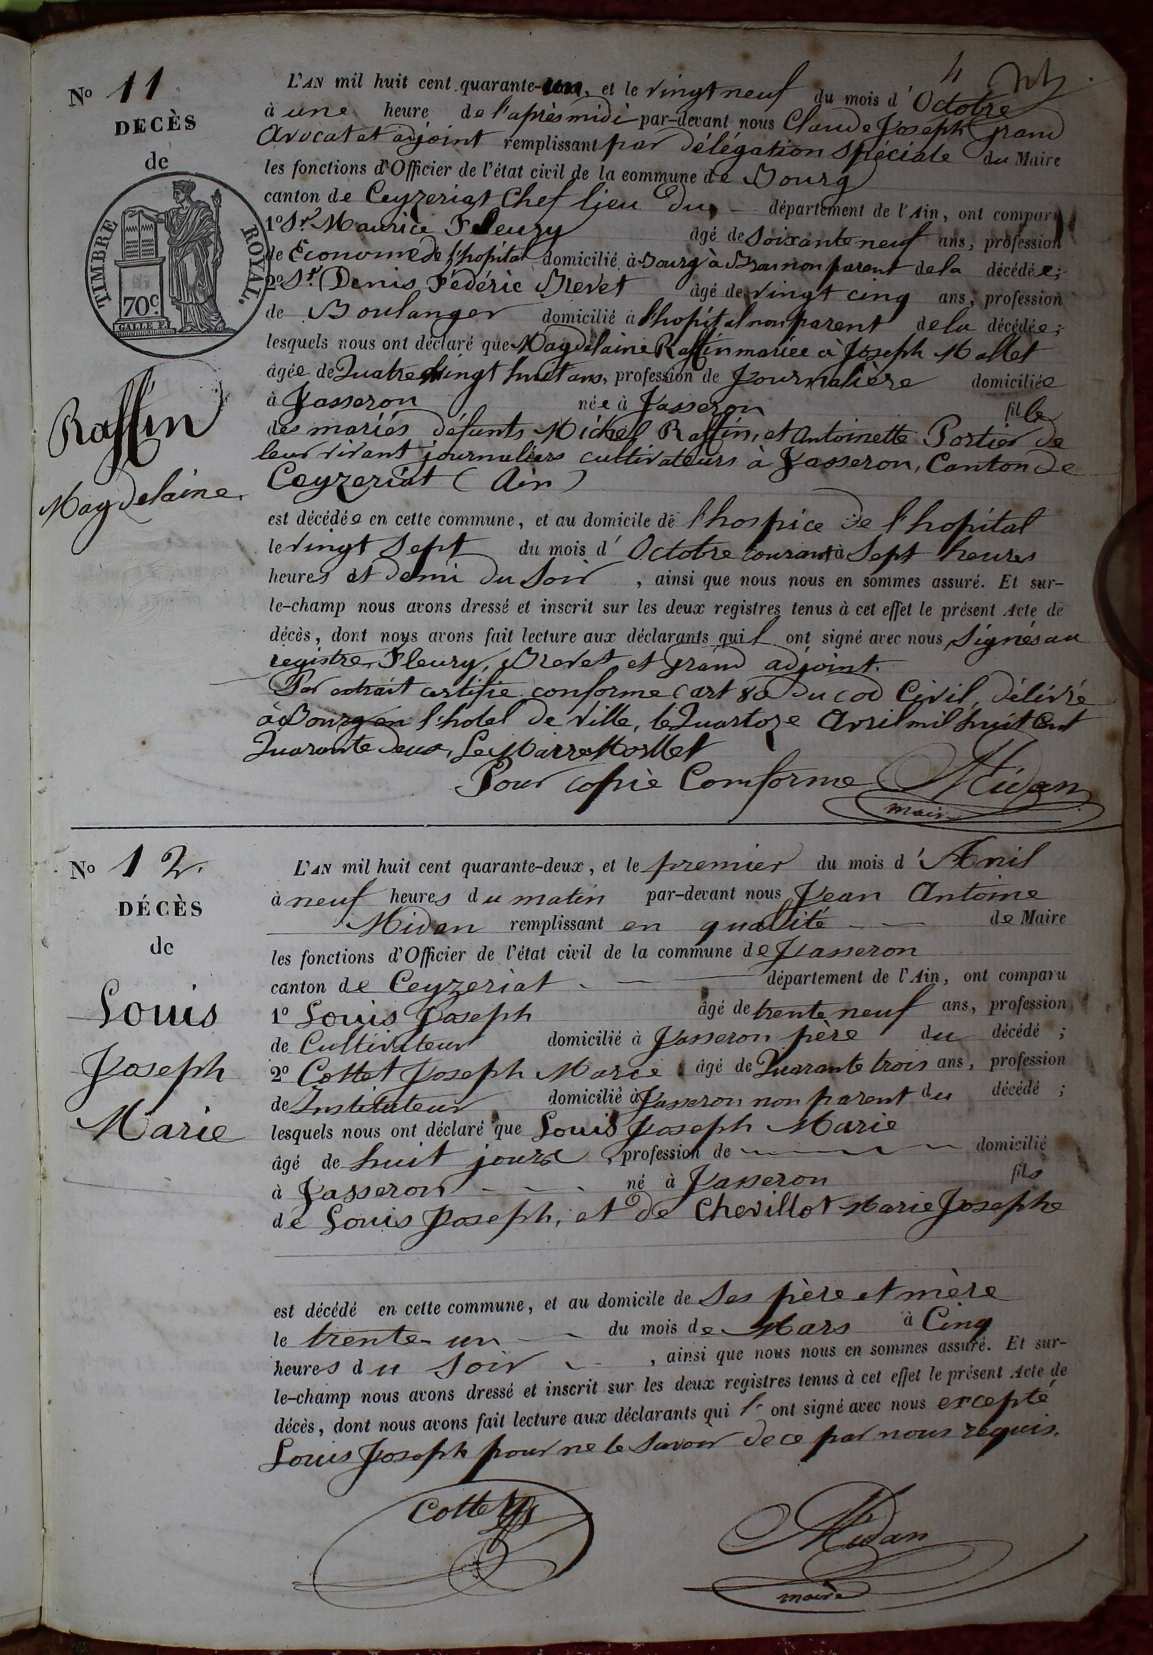 4
No 11
DÉCÈS
de
TIMBRE ROYAL.
70c.
Raffin
Magdelaine.
L'AN mil huit cent quarante-un, et le vingt neuf du mois d'Octobre
à une heure de l'après midi par-devant nous Claude Joseph Grand
Avocat et adjoint remplissant par délégation spéciale du Maire
les fonctions d'Officier de l'état civil de la commune de Bourg
canton de Ceyzeriat Chef lieu du département de l'Ain, ont comparu
1o Sr Maurice Fleury âgé de soixante neuf ans, profession
de Econome de l'hopital domicilié à Bourg à non parent de la décédée;
2o Sr Denis Fédéric Brevet âgé de vingt cinq ans, profession
de Boulanger domicilié à l'hopital non parent de la décédée;
lesquels nous ont déclaré que Magdelaine Raffin mariée à Joseph Mallet
âgée de Quatre vingt huit ans, profession de Journalière domiciliée
à Jasseron née à Jasseron fille
des mariés défunts Michel Raffin, et Antoinette Portier de
leur vivant journaliers cultivateurs à Jasseron, Canton de
Ceyzeriat (Ain)
est décédée en cette commune, et au domicile de l'hospice de l'hopital
le vingt sept du mois d'Octobre courant à Sept heures
heures et demi du Soir, ainsi que nous nous en sommes assuré. Et sur-
le-champ nous avons dressé et inscrit sur les deux registres tenus à cet effet le présent Acte de
décès, dont nous avons fait lecture aux déclarants qui l ont signé avec nous Signés au
registre, Fleury, Brevet et Grand adjoint.
Par extrait certifié conforme (art 80 du cod Civil, délivré
à Bourg en l'hotel de Ville, le Quartoze Avril mil huit Cent
Quarante deux, Le Maire
Pour copie Comforme Midan
maire
No 12.
DÉCÈS
de
Louis
Joseph
Marie
L'AN mil huit cent quarante-deux, et le premier du mois d'Avril
à neuf heures du matin par-devant nous Jean Antoine
Midan remplissant en qualité de Maire
les fonctions d'Officier de l'état civil de la commune de Jasseron
canton de Ceyzeriat département de l'Ain, ont comparu
1o Louis Joseph âgé de trente neuf ans, profession
de Cultivateur domicilié à Jasseron père du décédé;
2o Cottet Joseph Marie âgé de Quarante trois ans, profession
de Instituteur domicilié à Jasseron non parent du décédé;
lesquels nous ont déclaré que Louis Joseph Marie
âgé de huit jours, profession de domicilié
à Jasseron né à Jasseron fils
de Louis Joseph, et de Chevillot Marie Josephe
est décédé en cette commune, et au domicile de Ses père et mère
le trente un du mois de Mars à Cinq
heures du Soir, ainsi que nous nous en sommes assuré. Et sur-
le-champ nous avons dressé et inscrit sur les deux registres tenus à cet effet le présent Acte de
décès, dont nous avons fait lecture aux déclarants qui l ont signé avec nous excepté
Louis Joseph pour ne le Savoir de ce par nous requis.
Cottet Midan
maire